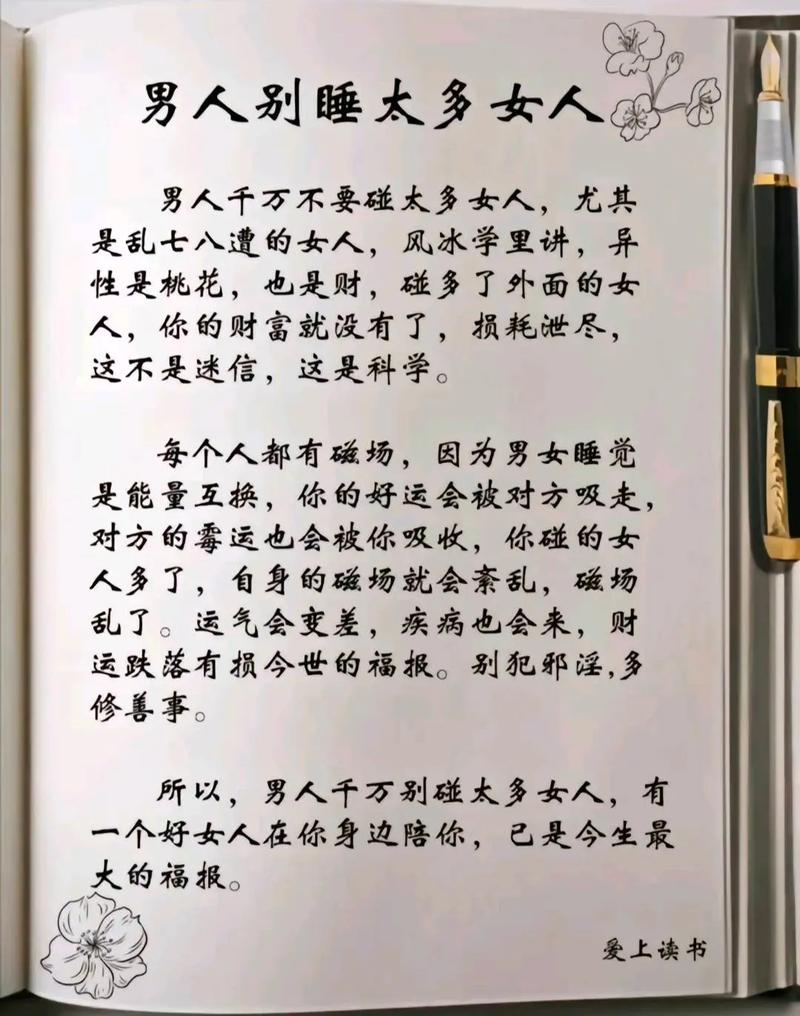 男人别睡太多女人
男人千万不要碰太多女人，尤其
是乱七八遭的女人，风冰学里讲，异
性是桃花，也是财，碰多了外面的女
人，你的财富就没有了，损耗泄尽，
这不是迷信，这是科学。
每个人都有磁场，因为男女睡觉
是能量互换，你的好运会被对方吸走，
对方的霉运也会被你吸收，你碰的女
人多了，自身的磁场就会紊乱，磁场
乱了。运气会变差，疾病也会来，财
运跌落有损今世的福报。别犯邪淫,多
修善事。
所以，男人千万别碰太多女人，有
一个好女人在你身边陪你，已是今生最
大的福报。
爱上读书